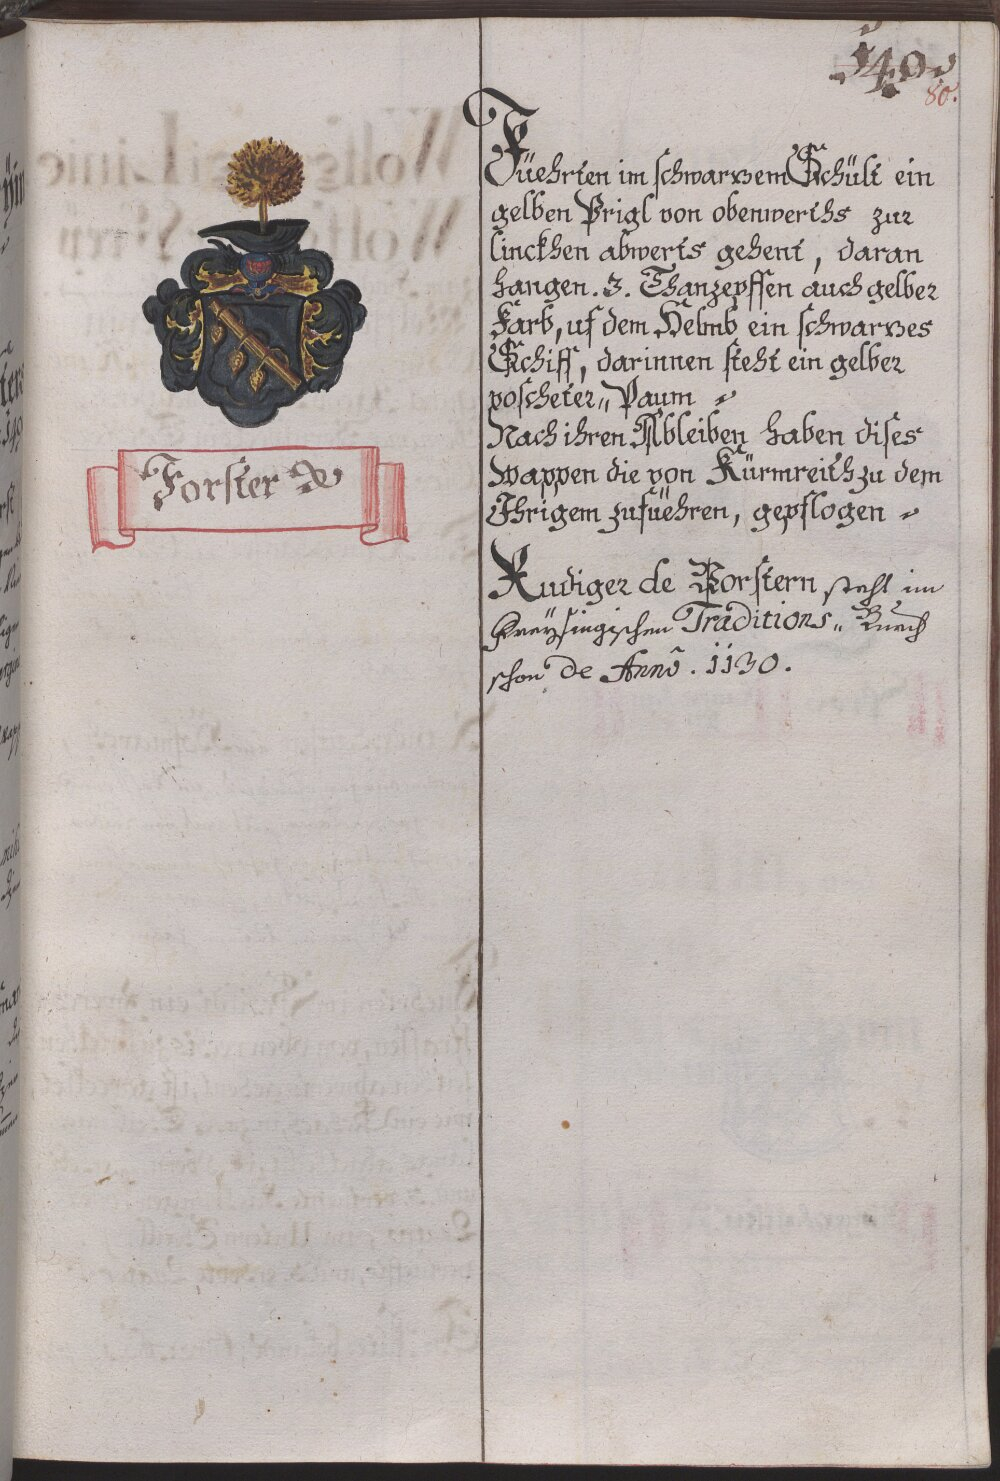 540
80.
Forster
Füehrten im schwarzem Schült ein
gelben Prigl von obenwerths zur
linckhen abwerts gehent, daran
hangen .3. Thanzepffen auch gelber
Farb, uf dem Helmb ein schwarzes
Schiff, darinnen steht ein gelber
poscheter„ Paum
Nach ihren Ableiben haben dises
wappen die von Kürmreith zu dem
Ihrigem zufüehren, gepflogen
Rudiger de Vorstern steht im
Freysingischen Traditions„ Buech
schon de Anno. 1130.